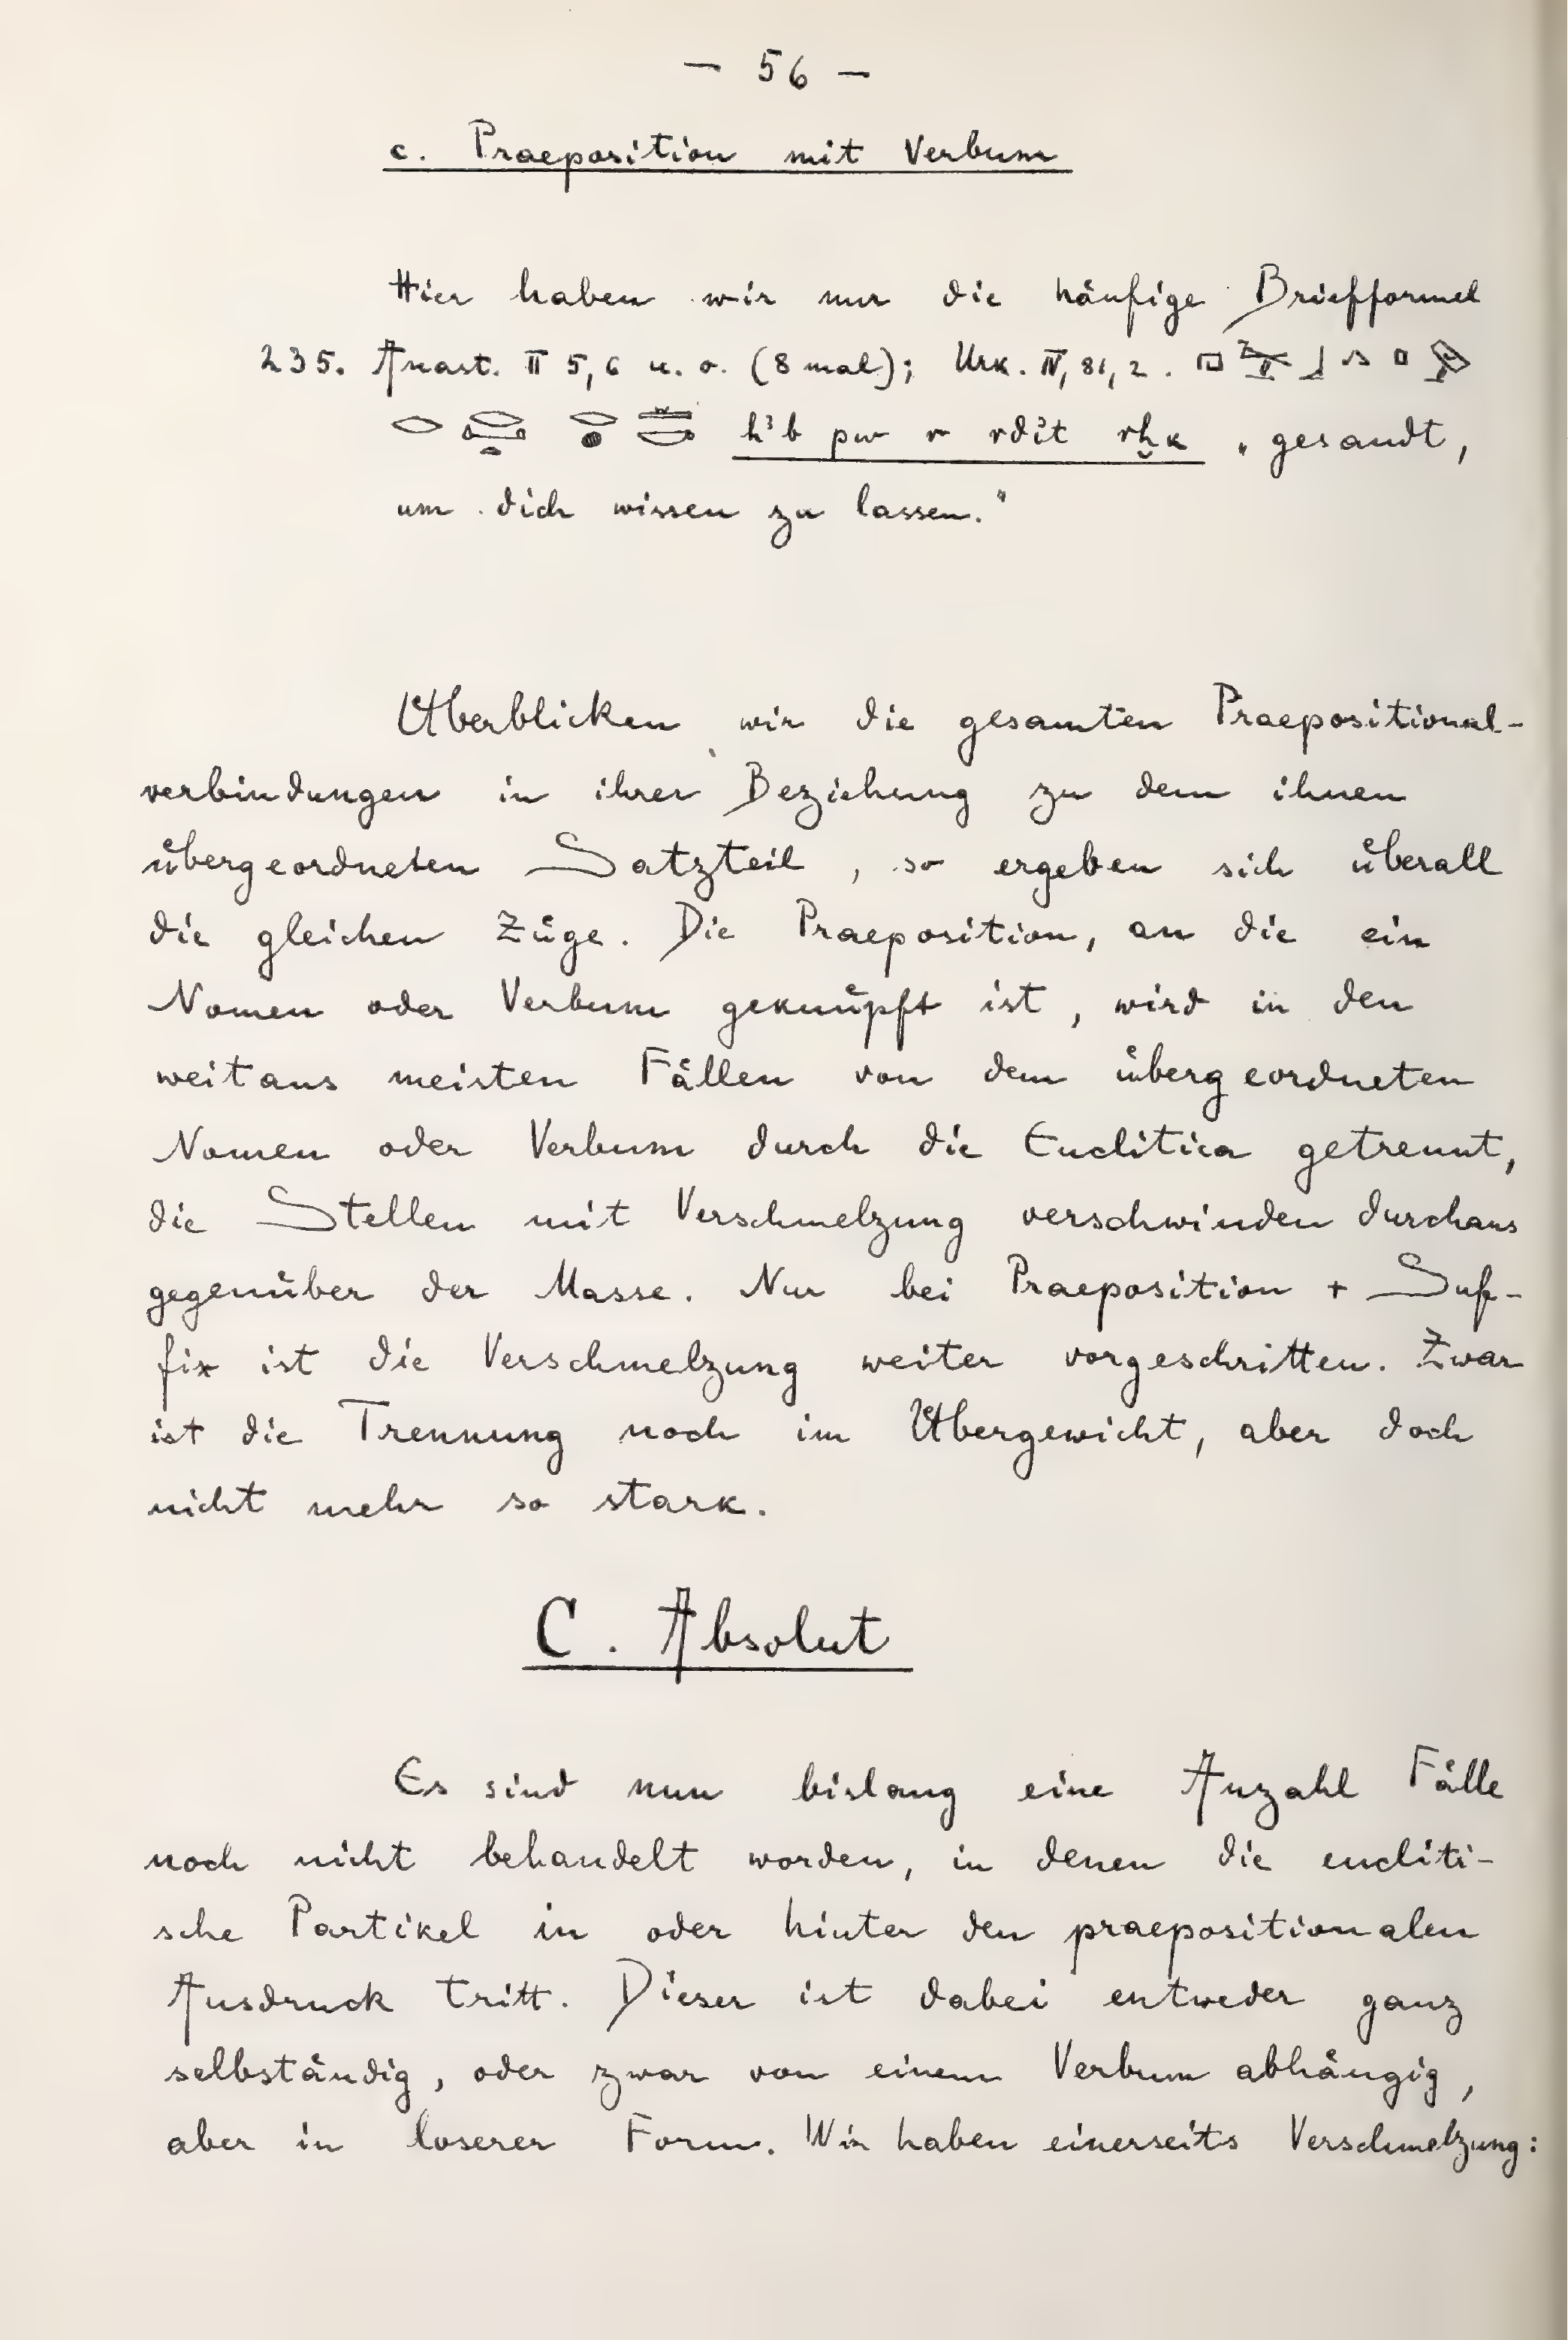 — 56 —
c. Praeposition mit Verbum
Hier haben wir nur die häufige Briefformel
235. Anast. II 5,6 u. o. (8 mal); Urk. IV, 81, 2.
hꜣb pw r rdit rḫk „gesandt,
um dich wissen zu lassen."
Überblicken wir die gesamten Praepositional-
verbindungen in ihrer Beziehung zu dem ihnen
übergeordneten Satzteil, so ergeben sich überall
die gleichen Züge. Die Praeposition, an die ein
Nomen oder Verbum geknüpft ist, wird in den
weitaus meisten Fällen von dem übergeordneten
Nomen oder Verbum durch die Enclitica getrennt,
die Stellen mit Verschmelzung verschwinden durchaus
gegenüber der Masse. Nur bei Praeposition + Suf-
fix ist die Verschmelzung weiter vorgeschritten. Zwar
ist die Trennung noch im Übergewicht, aber doch
nicht mehr so stark.
C. Absolut
Es sind nun bislang eine Anzahl Fälle
noch nicht behandelt worden, in denen die encliti-
sche Partikel in oder hinter den praepositionalen
Ausdruck tritt. Dieser ist dabei entweder ganz
selbständig, oder zwar von einem Verbum abhängig,
aber in loserer Form. Wir haben einerseits Verschmelzung: